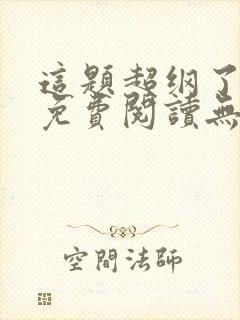 這題超纲了
免費閱讀無
空間法師